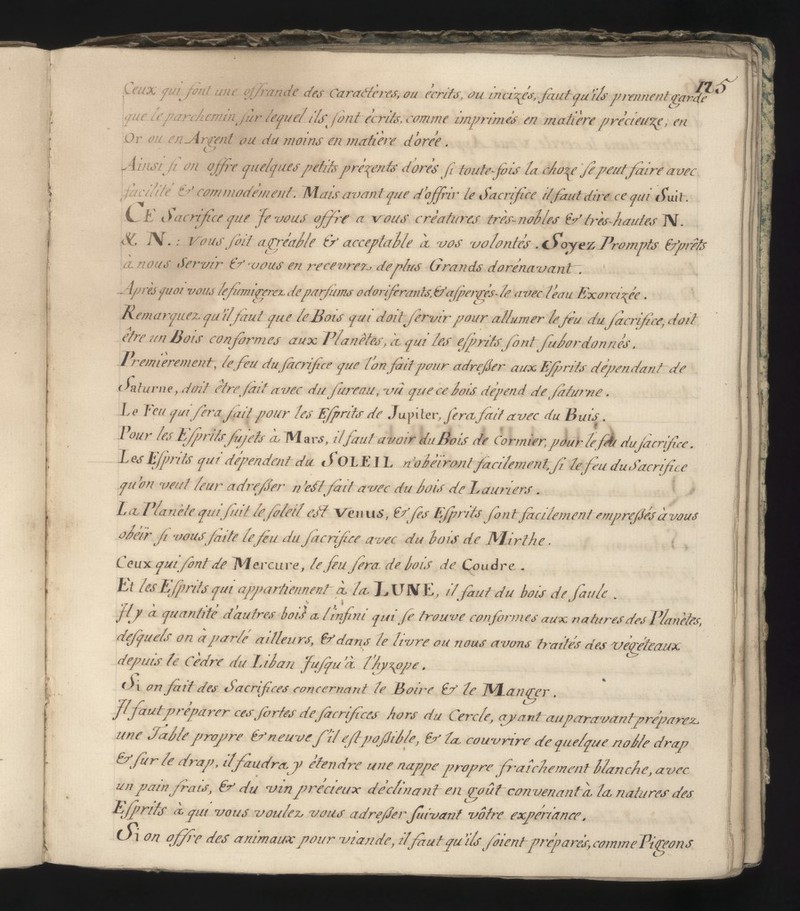 125
Ceux qui sont une offrande des caractères, ou écrits, ou incizés, faut qu'ils prennent garde
que le parchemin sur lequel ils sont écrits, comme imprimés en matière précieuze, en
Or ou en Argent ou du moins en matière d'orée.
Ainsi si on offre quelques petits prézents dorés si toute-fois la choze se peut faire avec
facilité & commodément. Mais avant que d'offrir le Sacrifice il faut dire ce qui Suit.
CE Sacrifice que Je vous offre a vous créatures très-nobles & très-hautes N.
&. N.: vous soit agréable & acceptable à vos volontés. Soyez Prompts & prêts
à nous Servir & vous en recevrez de plus Grands dorénavant.
Après quoi vous le fumigerez de parfums odoriferants, & aspergés-le avec l'eau Exorcizée.
Remarquez qu'il faut que le Bois qui doit servir pour allumer le feu du sacrifice, doit
être un Bois conformes aux Planêtes, à qui les esprits sont subordonnés.
Premièrement, le feu du sacrifice que l'on fait pour adresser aux Esprits dépendant de
Saturne, doit être fait avec du sureau, vû que ce bois dépend de saturne.
Le Feu qui sera fait pour les Esprits de Jupiter, sera fait avec du Buis.
Pour les Esprits sujets à Mars, il faut avoir du Bois de Cormier, pour le feu du sacrifice.
Les Esprits qui dépendent du SOLEIL n'obéiront facilement, si le feu du Sacrifice
qu'on veut leur adresser n'est fait avec du bois de Lauriers.
La Planète qui suit le soleil est Venus, & ses Esprits sont facilement empressés à vous
obéir si vous faite le feu du sacrifice avec du bois de Mirthe.
Ceux qui sont de Mercure, le feu sera de bois de Coudre.
Et les Esprits qui appartiennent à la LUNE, il faut du bois de saule.
Il y à quantité d'autres bois a l'infini qui se trouve conformes aux natures des Planêtes,
desquels on à parlé ailleurs, & dans le livre ou nous avons traités des végéteaux
depuis le Cèdre du Liban Jusqu'à l'hyzope.
Si on fait des Sacrifices concernant le Boire & le Manger.
Il faut préparer ces sortes de sacrifices hors du Cercle, ayant auparavant préparez
une Table propre & neuve s'il est possible, & la couvrire de quelque noble drap
& sur le drap, il faudra y étendre une nappe propre fraîchement blanche, avec
un pain frais, & du vin précieux déclinant en goût convenant à la natures des
Esprits à qui vous voulez vous adresser suivant vôtre expériance.
Si on offre des animaux pour viande, il faut qu'ils soient préparés, comme Pigeons